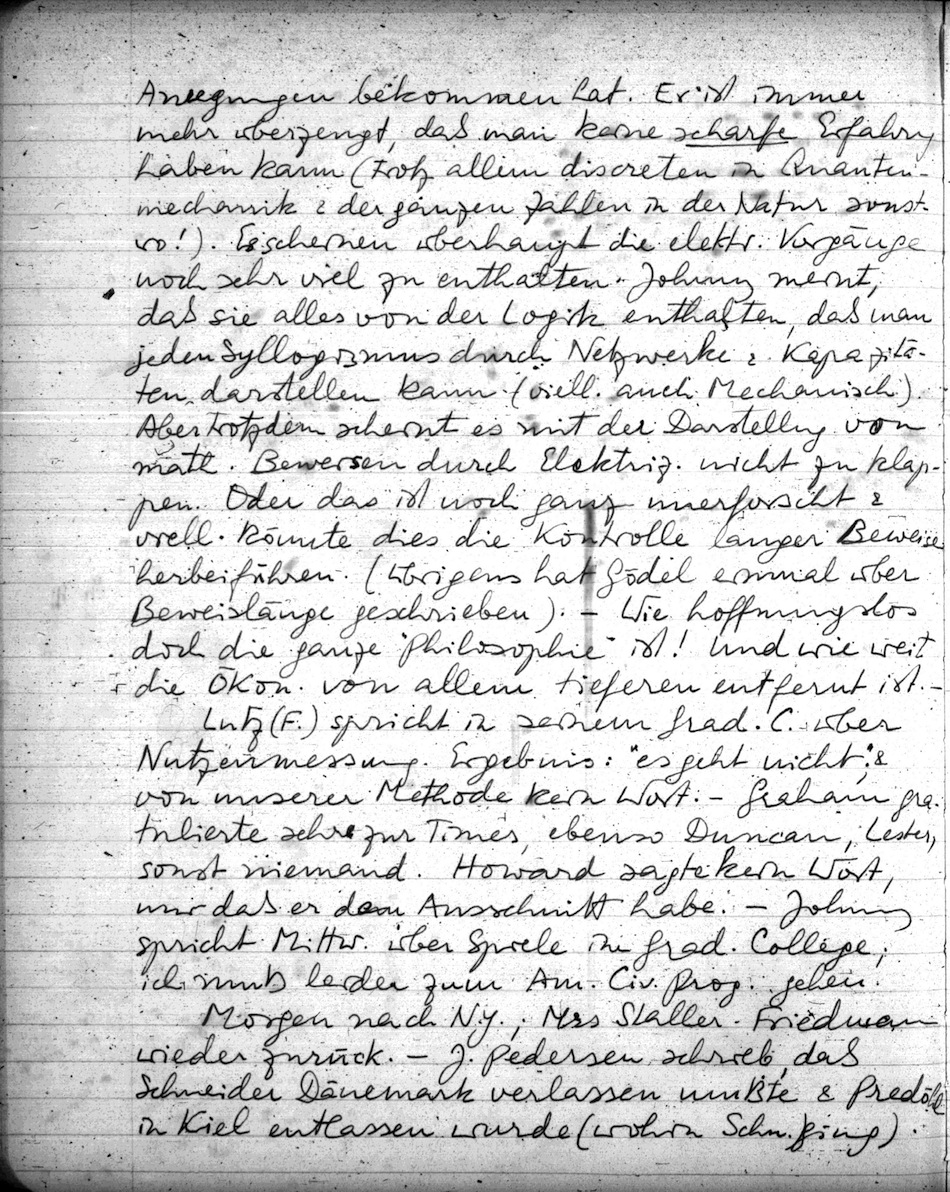 Anregungen bekommen hat. Er ist immer
mehr überzeugt, daß man keine scharfe Erfahrg
haben kann (trotz allem discreten in Quanten-
mechanik & der ganzen Zahlen in der Natur sonst-
wo!). Es scheinen überhaupt die elektr. Vorgänge
noch sehr viel zu enthalten. Johnny meint,
daß sie alles von der Logik enthalten, daß man
jeden Syllogizmus durch Netzwerke & Kapazitä-
ten darstellen kann (viell. auch Mechanisch).
Aber trotzdem scheint es mit der Darstellg von
math. Beweisen durch Elektriz. nicht zu klap-
pen. Oder das ist noch ganz unerforscht &
viell. könnte dies die Kontrolle langer Beweise
herbeiführen. (Übrigens hat Gödel einmal über
Beweislänge geschrieben). – Wie hoffnungslos
doch die ganze "Philosophie" ist! Und wie weit
die Ökon. von allem tieferen entfernt ist. –
Lutz (F.) spricht in seinem Grad. C. über
Nutzenmessung. Ergebnis: "es geht nicht", &
von unserer Methode kein Wort. – Graham gra-
tulierte sehr zur Times, ebenso Duncan, Lester,
sonst niemand. Howard sagte kein Wort,
nur daß er den Ausschnitt habe. – Johnny
spricht Mittw. über Spiele im Grad. College;
ich muß leider zum Am. Civ. Prog. gehen.
Morgen nach N.Y.; Mrs Staller. Friedman
wieder zurück. – J. Pedersen schrieb, daß
Schneider Dänemark verlassen mußte & Predöhl
in Kiel entlassen wurde (wohin Schn. ging).